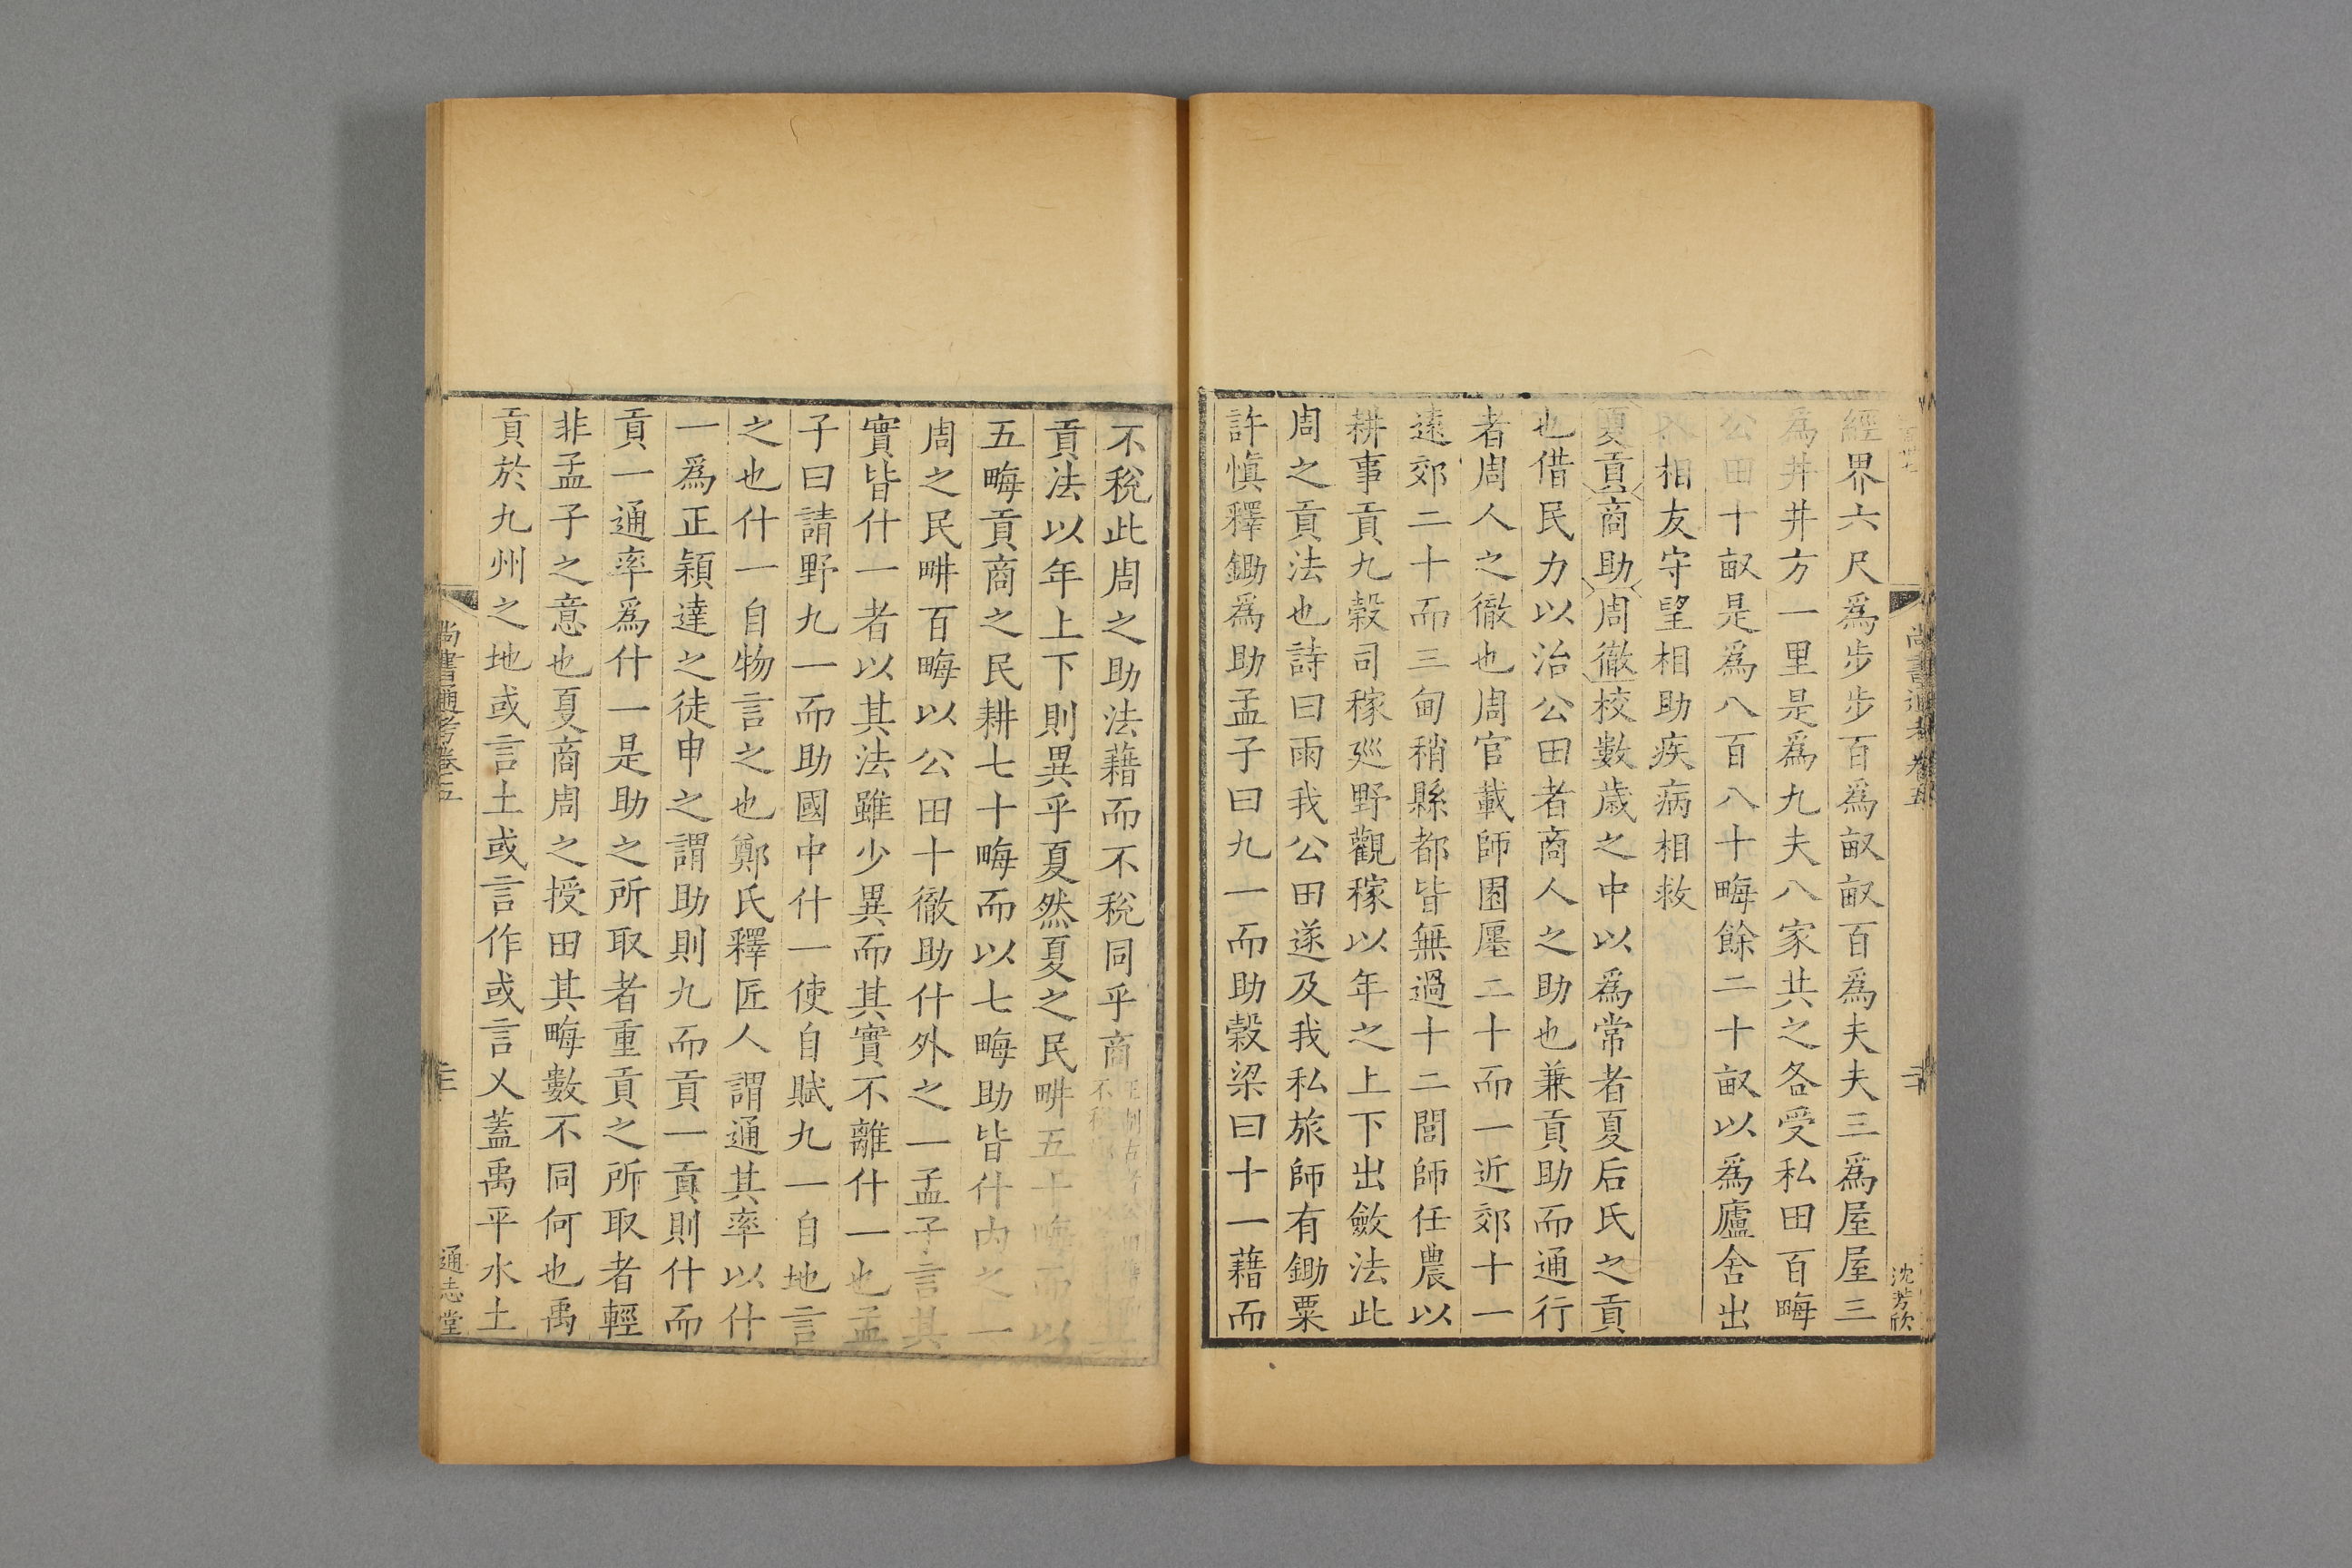 經界六尺爲步步百爲畝畝百爲夫夫三爲屋屋三
爲井井方一里是爲九夫八家共之各受私田百畮
公田十畝是爲八百八十畮餘二十畝以爲廬舍出
相友守望相助疾病相救
夏貢商助周徹校數歲之中以爲常者夏后氏之貢
也借民力以治公田者商人之助也兼貢助而通行
者周人之徹也周官載師園廛二十而一近郊十一
遠郊二十而三甸稍縣都皆無過十二閭師任農以
耕事貢九穀司稼巡野觀稼以年之上下出斂法此
周之貢法也詩曰雨我公田遂及我私旅師有鋤粟
許愼釋鋤爲助孟子曰九一而助穀梁曰十一藉而
尚書通考卷五
沈芳欣
不稅此周之助法藉而不稅同乎商
貢法以年上下則異乎夏然夏之民畊五十畮而以
五畮貢商之民耕七十畮而以七畮助皆什内之一
周之民畊百畮以公田十徹助什外之一孟子言其
實皆什一者以其法雖少異而其實不離什一也孟
子曰請野九一而助國中什一使自賦九一自地言
之也什一自物言之也鄭氏釋匠人謂通其率以什
一爲正穎達之徒申之謂助則九而貢一貢則什而
貢一通率爲什一是助之所取者重貢之所取者輕
非孟子之意也夏商周之授田其畮數不同何也禹
貢於九州之地或言土或言作或言乂蓋禹平水土
尚書通考卷五
通志堂